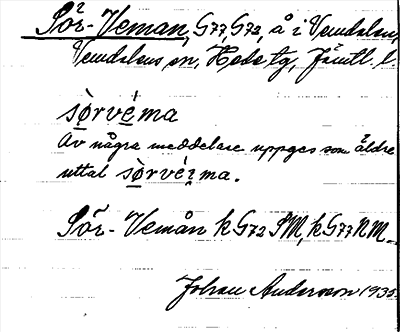 Sör-Veman, G77, G72, å i Vemdalen,
Vemdalens sn, Hede tg, Jämtl. l.
sø̀rvéma
Av några meddelare uppges som äldre
uttal sø̀rvéɪma.
Sör-Vemån k G72 SM, k G77 NM
Johan Anderson 1935.